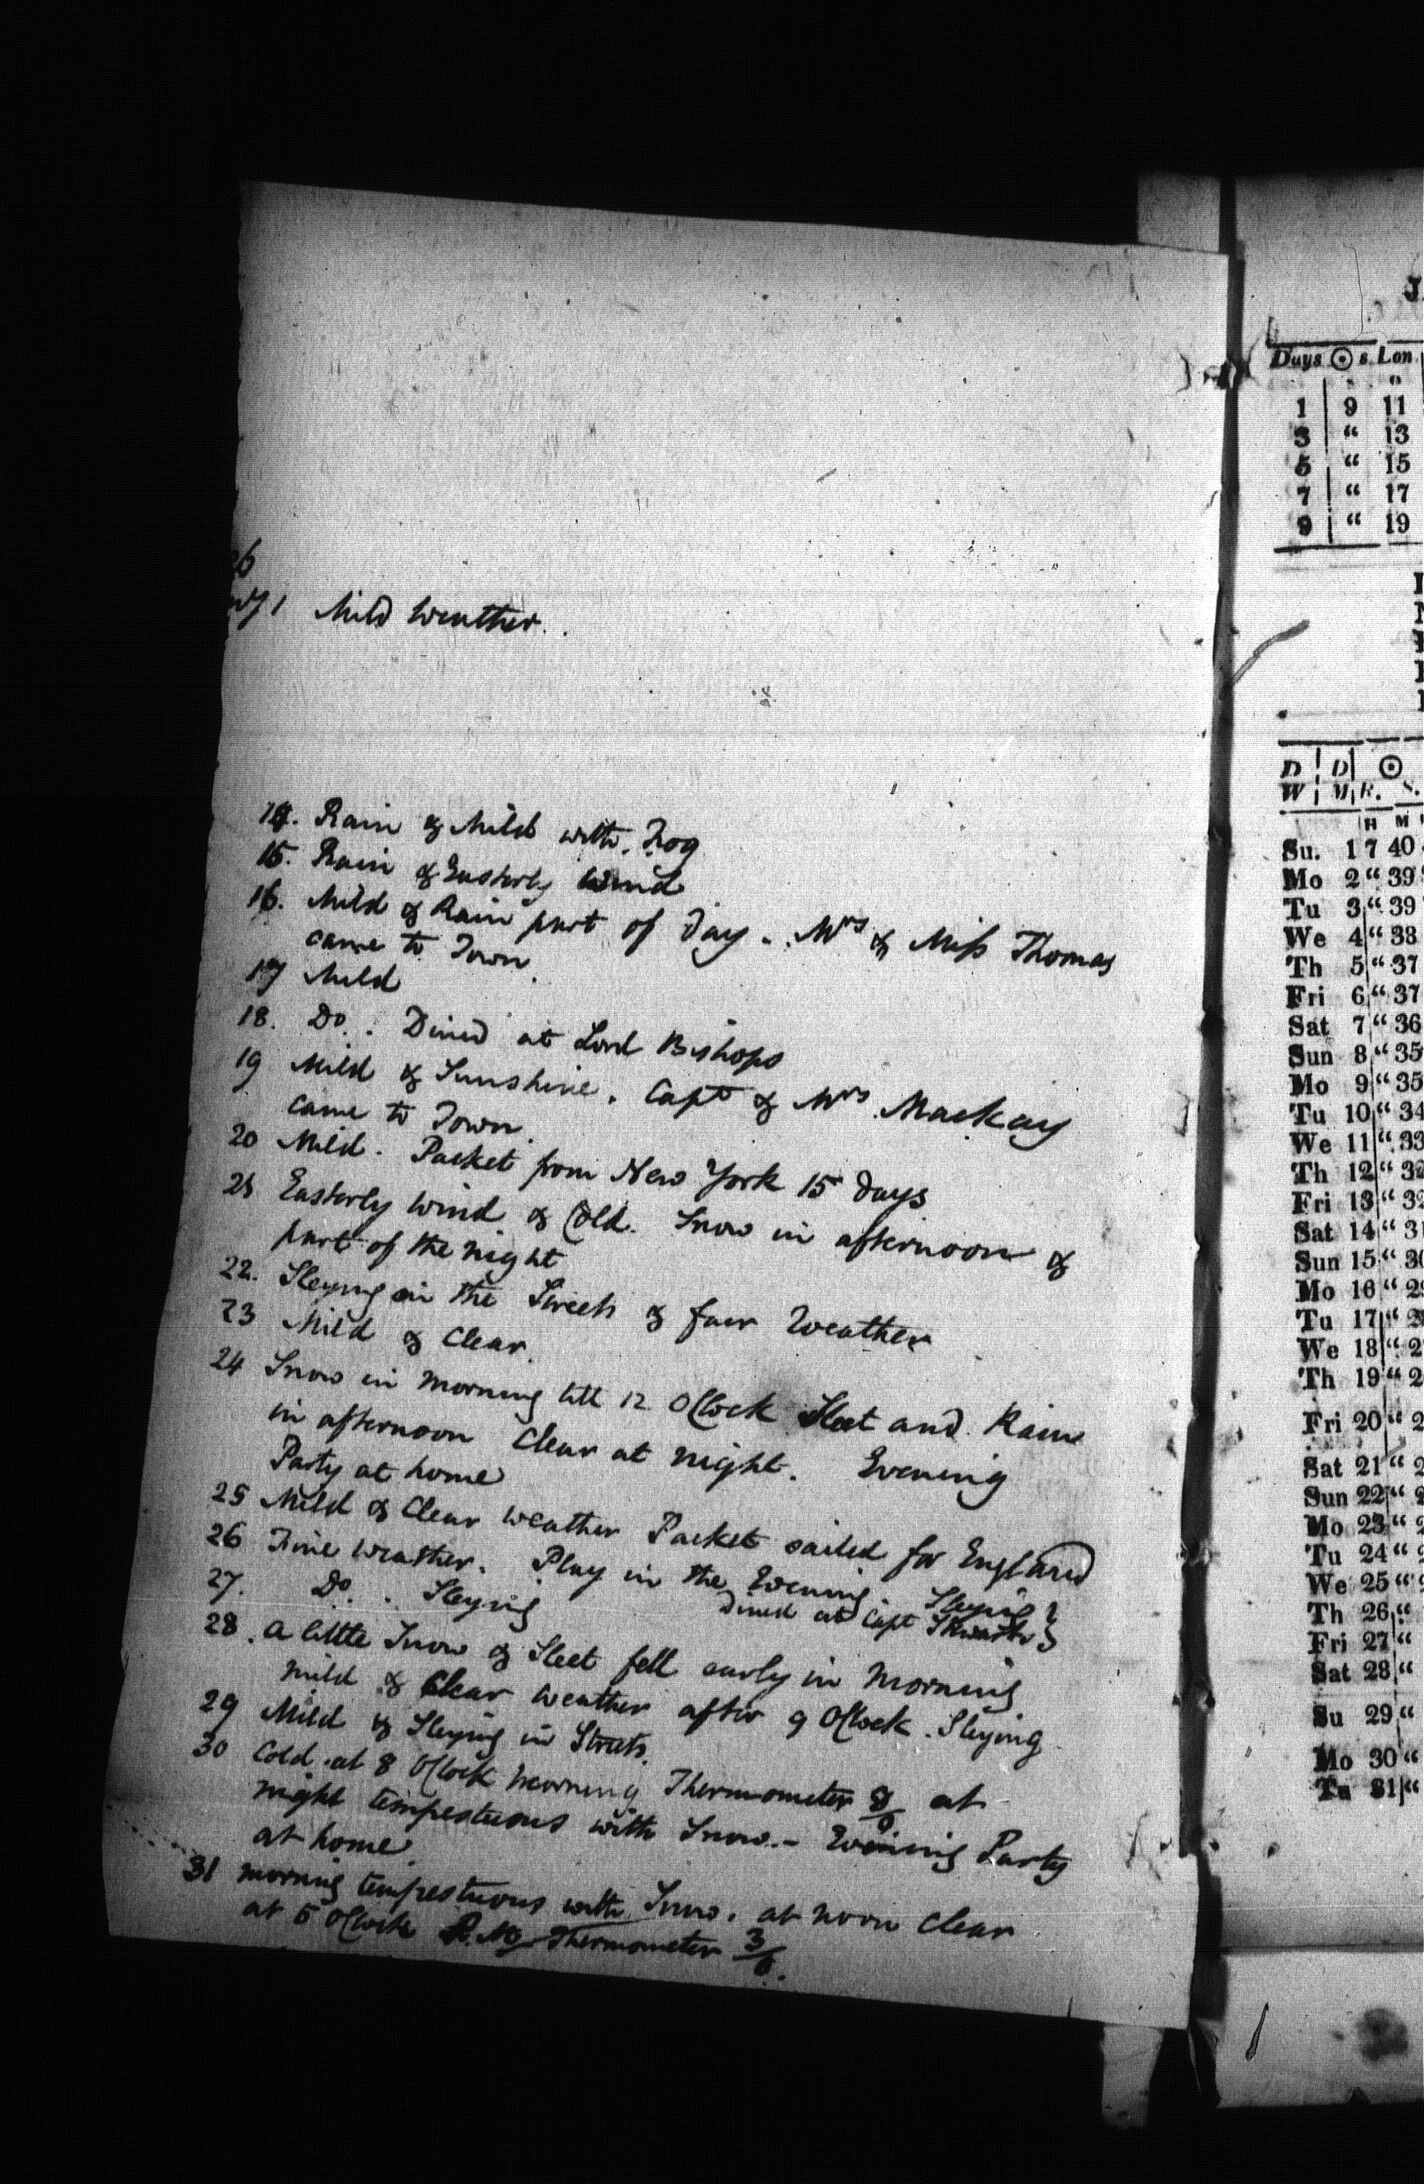 26
1 Mild Weather.
14. Rain & Mild with Fog
15. Rain & Easterly Wind
16. Mild & Rain part of day. Mrs & Miss Thomas
came to Town.
17 Mild
18. Do. Dined at Lord Bishops
19 Mild & Sunshine. Capt & Mrs Mackay
came to Town.
20 Mild. Packet from New York 15 days
21 Easterly Wind & Cold. Snow in afternoon &
part of the night
22. Sleying in the Streets & fair Weather
23 Mild & Clear.
24 Snow in morning till 12 OClock Sleet and Rain
in afternoon Clear at night. Evening
Party at home
25 Mild & Clear weather Packet sailed for England
26 Fine weather. Play in the Evening Sleying
27. Do. Sleying dined at Capt
28. a little Snow & Sleet fell early in morning
mild & Clear weather after 9 OClock. Sleying
29 Mild & Sleying in Streets.
30 Cold. at 8 OClock morning Thermometer 8/0 at
night tempestuous with Snow.- Evening Party
at home
31 morning tempestuous with Snow. at noon Clear
at 5 OClock P.M. Thermometer 3/0.
J
Days ☉ s Lon
1 9 11
3 “ 13
5 “ 15
7 “ 17
9 “ 19
D D ☉
W M R. S.
H M
Su. 1 7 40
Mo 2 “ 39
Tu 3 “ 39
We 4 “ 38
Th 5 “ 37
Fri 6 “ 37
Sat 7 “ 36
Sun 8 “ 35
Mo 9 “ 35
Tu 10 “ 34
We 11 “ 33
Th 12 “ 32
Fri 13 “ 32
Sat 14 “ 31
Sun 15 “ 30
Mo 16 “ 2
Tu 17 “ 2
We 18 “ 2
Th 19 “ 2
Fri 20 “ 2
Sat 21 “ 2
Sun 22 “ 2
Mo 23 “ 2
Tu 24 “ 2
We 25 “
Th 26 “
Fri 27 “
Sat 28 “
Su 29 “
Mo 30 “
Tu 31 “